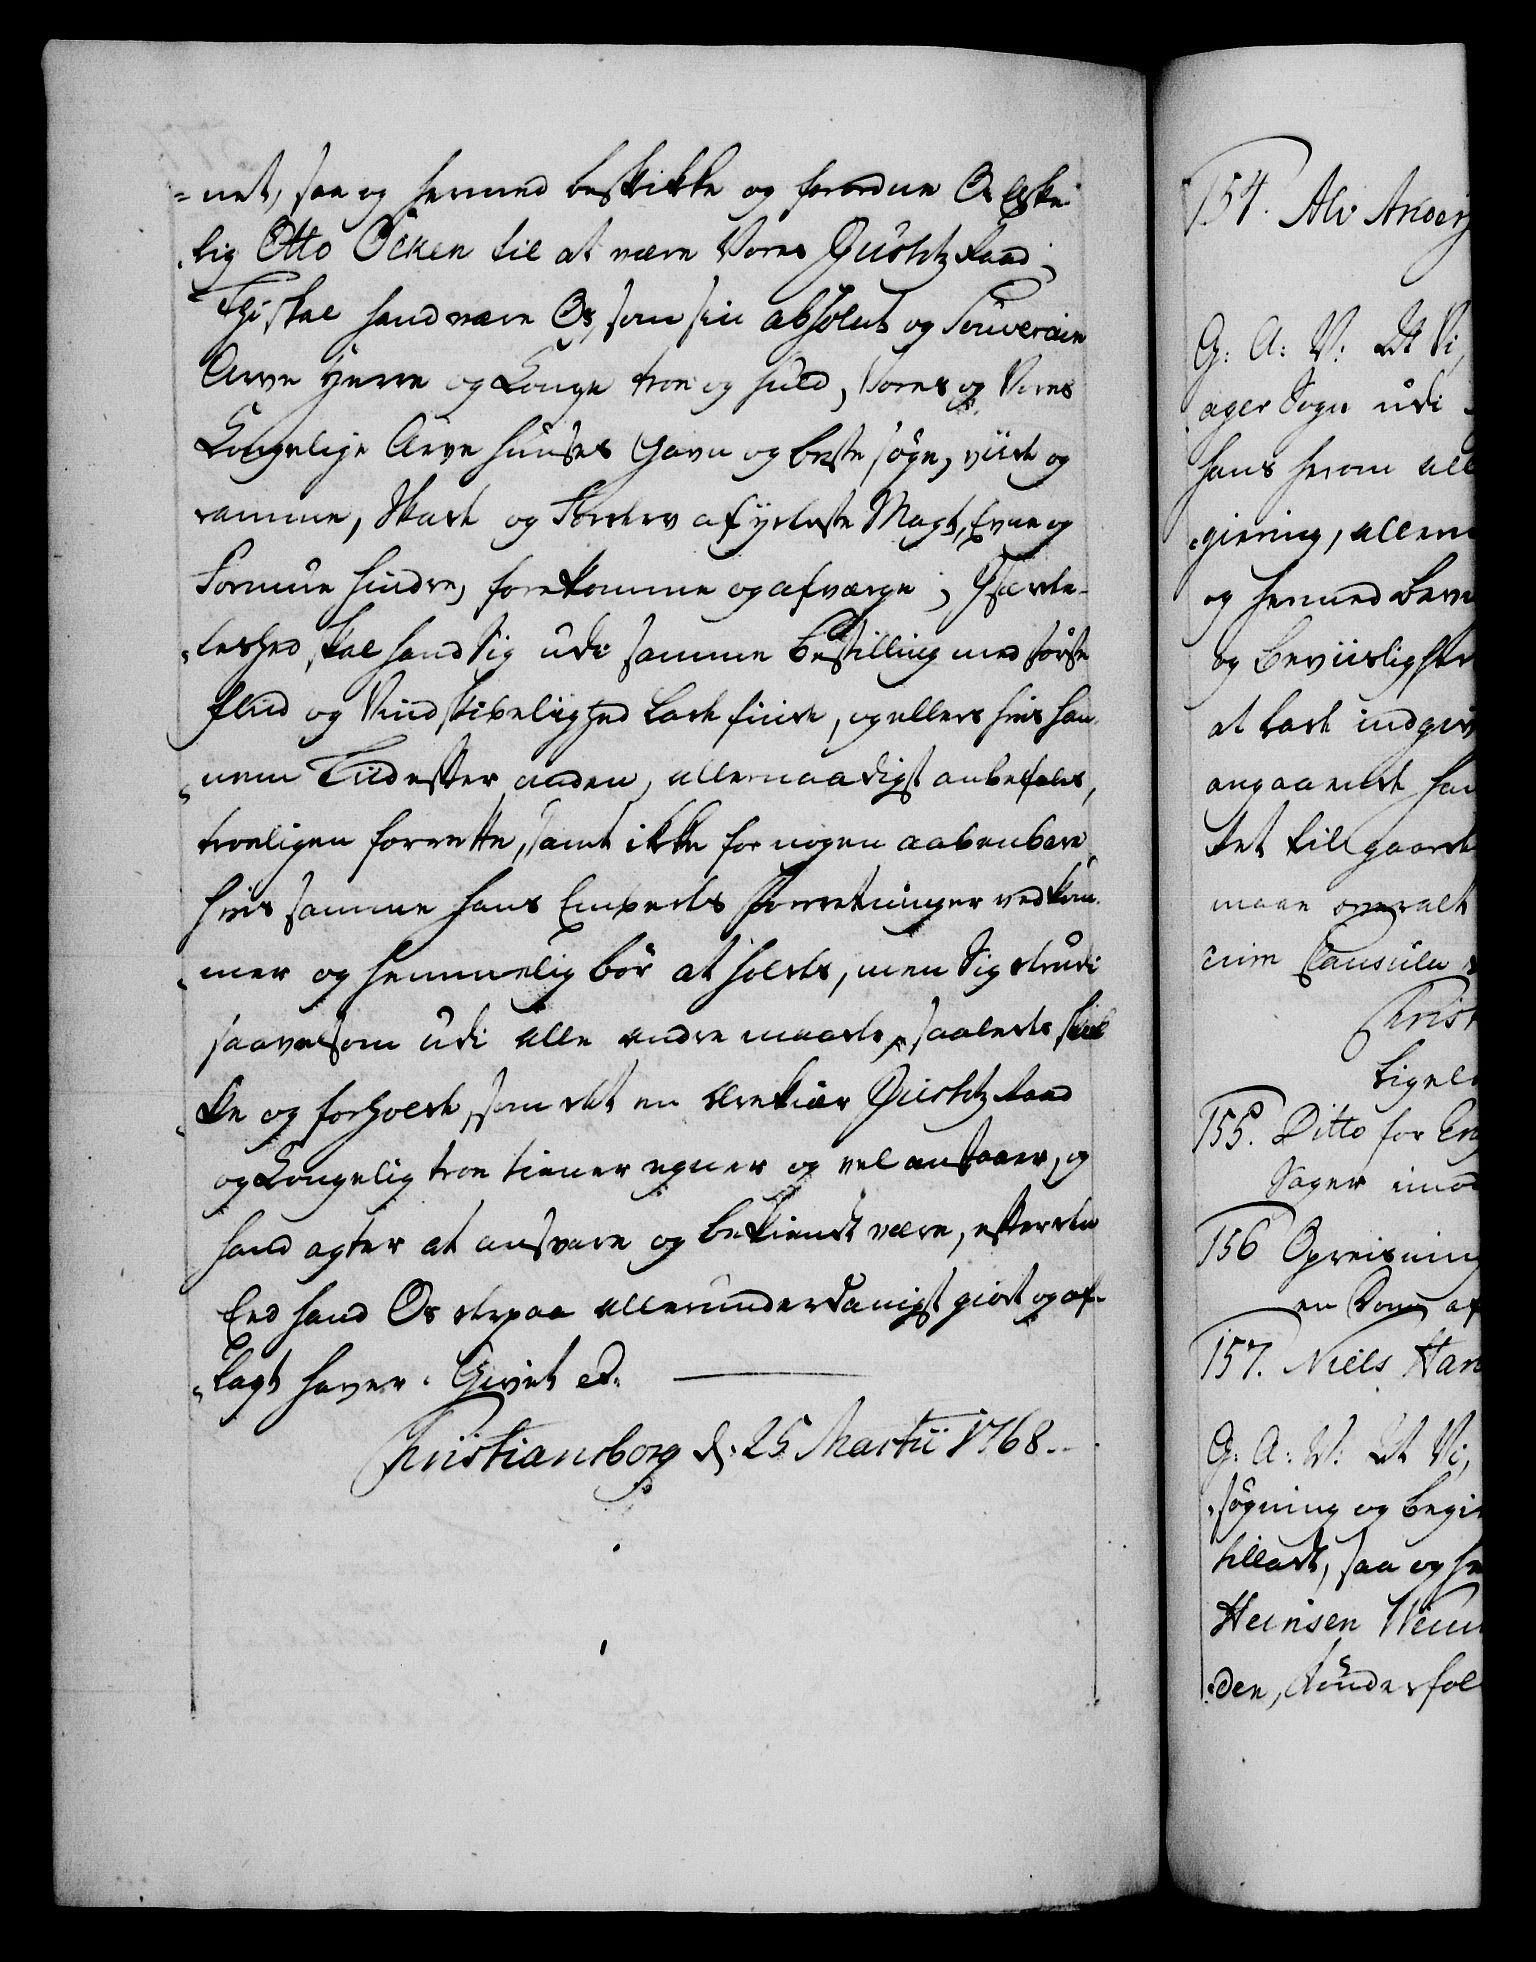 =net, saa og hermed beskikke og forordne Os Elske-
lig Otto Öcken til at være Vores Justitz Raad;
Thi skal hand være Os, som sin absolut og Souverain
Arve Herre og Konge troe og huld, Vores og Vores
Kongelige Arve Huuses Gavn og beste søge, viide og
ramme, Skade og Forderv af yderste Magt, Evne og
Formue hindre, forekomme og afværge; Jsærde-
leshed skal hand Sig udi samme Bestilling med største
Fliid og Vindskibelighed lade finde, og ellers hvis han-
nem Tiid efter anden, allernaadigst anbefales,
troeligen forrette, samt ikke for nogen aabenbare
hvis samme hans Embeds Forretninger vedkom-
mer og hemmelig bør at holdes, men Sig derudi
saavelsom udi alle andre maader, saaledes skik-
ke og forholde, som det en ærekiær Justitz Raad
og Kongelig troe tiener egner og vel anstaaer, og
hand agter at ansvare og bekiendt være, efter den
Eed hand Os derpaa allerunderdanigst giort og af-
lagt haver. Givet etc.
Christiansborg d. 25 Martii 1768.
154. Alv Anders
G: A: V: At Vi,
ager Sogn udi
hans herom all
giering, allern
og hermed beve
og beviislighed
at lade indgiv
angaaende han
stet tilgaard
maae overalt
cum Clausula
Christ
Ligel
155. Ditto for
Sager imod
156 Opreisning
en Dom af
157. Niels Han
G: A: V: At Vi,
søgning og begie
tilladt, saa og he
Heinsen
den,